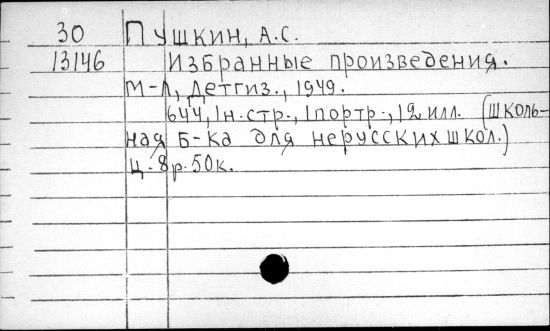 30 Пушкин, А.С.
13146 Избранные произведения.
М-Л, Детгиз., 1949.
644, 1н.стр., 1портр., 12 илл. (Школь-
ная Б-ка для нерусских школ.)
Ц. 8р. 50к.